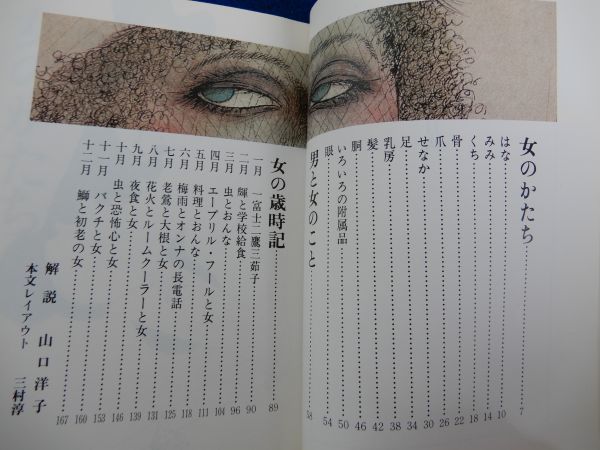 女のかたち……7
はな……10
みみ……14
くち……18
骨……22
爪……26
せなか……30
足……34
乳房……38
髪……42
胴……46
いろいろの附属品……50
眼……54
男と女のこと……58
女の歳時記……89
一月 一富士二鷹三茄子……90
二月 と学校給食……96
三月 虫とおんな……104
四月 エープリル・フールと女……111
五月 料理とおんな……118
六月 梅雨とオンナの長電話……125
七月 老鶯と大根と女……131
八月 花火とルームクーラーと女……139
九月 夜食と女……146
十月 虫と恐怖心と女……153
十一月 バクチと女……160
十二月 鰤と初老の女……167
解説 山口洋子
本文レイアウト 三村淳